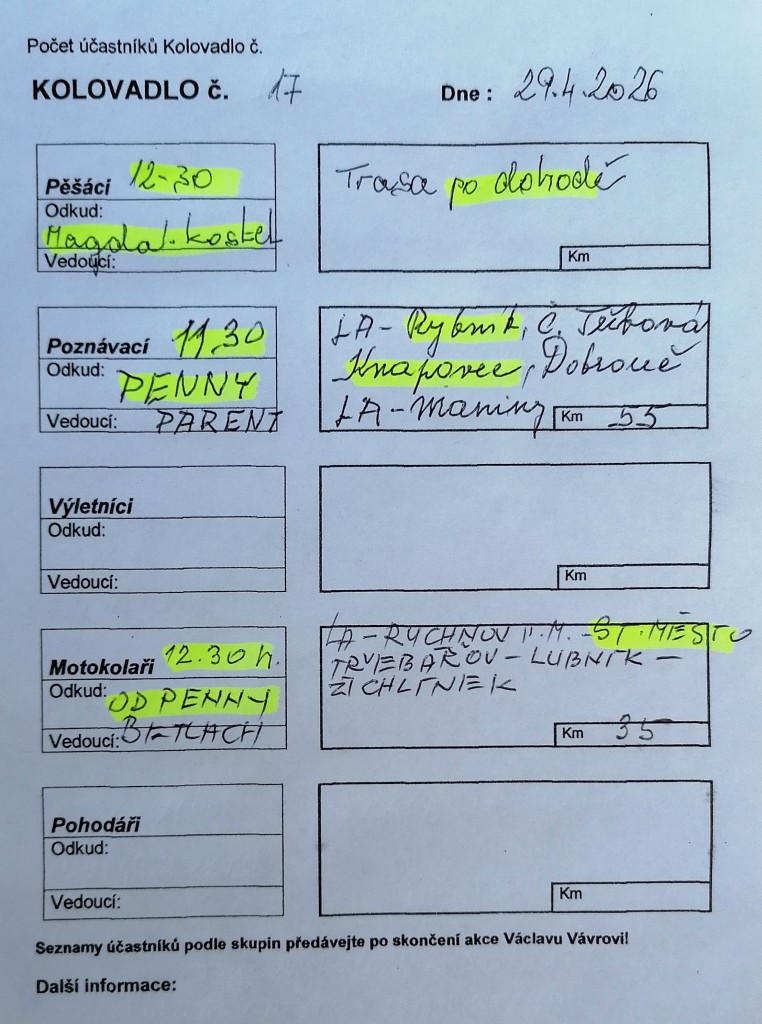 Počet účastníků Kolovadlo č.
KOLOVADLO č. 17 Dne : 29.4.2026
Pěšáci 12-30
Odkud:
Magdal. kostel
Vedoucí:
Trasa po dohodě
Km
Poznávací 11,30
Odkud: PENNY
Vedoucí: PARENT
LA - Rybník, Č. Třebová
Knapovec, Dobrouč
LA - Maniny Km 55
Výletníci
Odkud:
Vedoucí:
Km
Motokolaři 12.30 h.
Odkud: OD PENNY
Vedoucí:
LA - RYCHNOV N.M. - ST. MĚSTO
TŘEBAŘOV - LUBNÍK -
Km 35
Pohodáři
Odkud:
Vedoucí:
Km
Seznamy účastníků podle skupin předávejte po skončení akce Václavu Vávrovi!
Další informace: